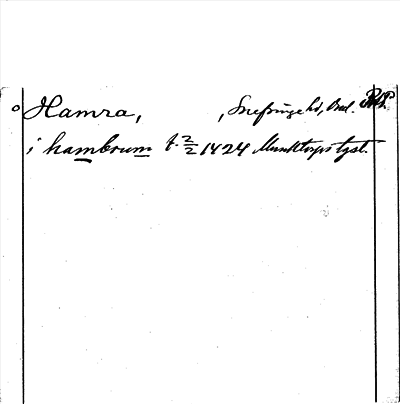 Hamra, , Snefringe hd, Vsml.
i hambrum f. 2/2 1424 Munktorps tgst.